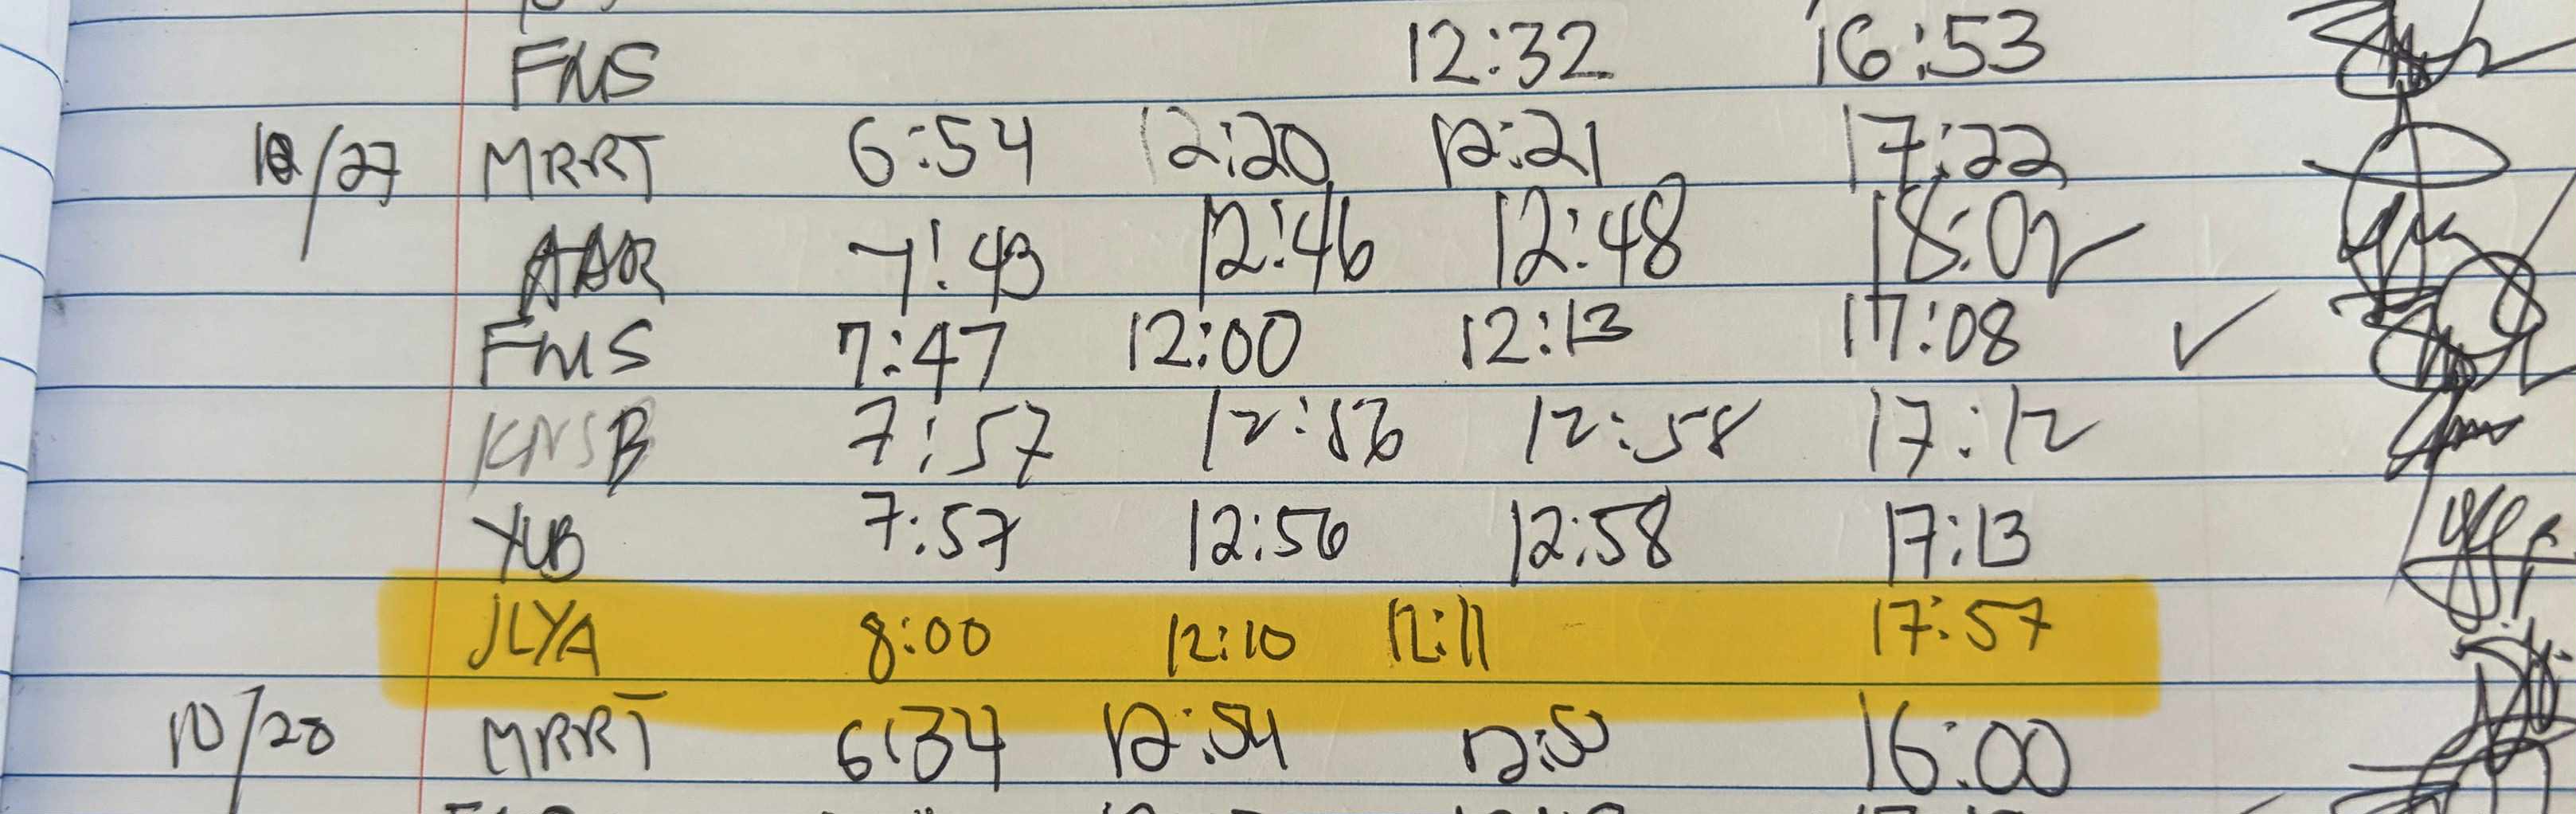 FMS 12:32 16:53
10/27 MRRT 6:54 12:20 12:21 17:22
AAR 7:43 12:46 12:48 18:02
FMS 7:47 12:00 12:13 17:08 ✓
KNSB 7:57 12:56 12:58 17:12
YUB 7:57 12:56 12:58 17:13
JLYA 8:00 12:10 12:11 17:57
10/28 MRRT 6:34 12:54 16:00